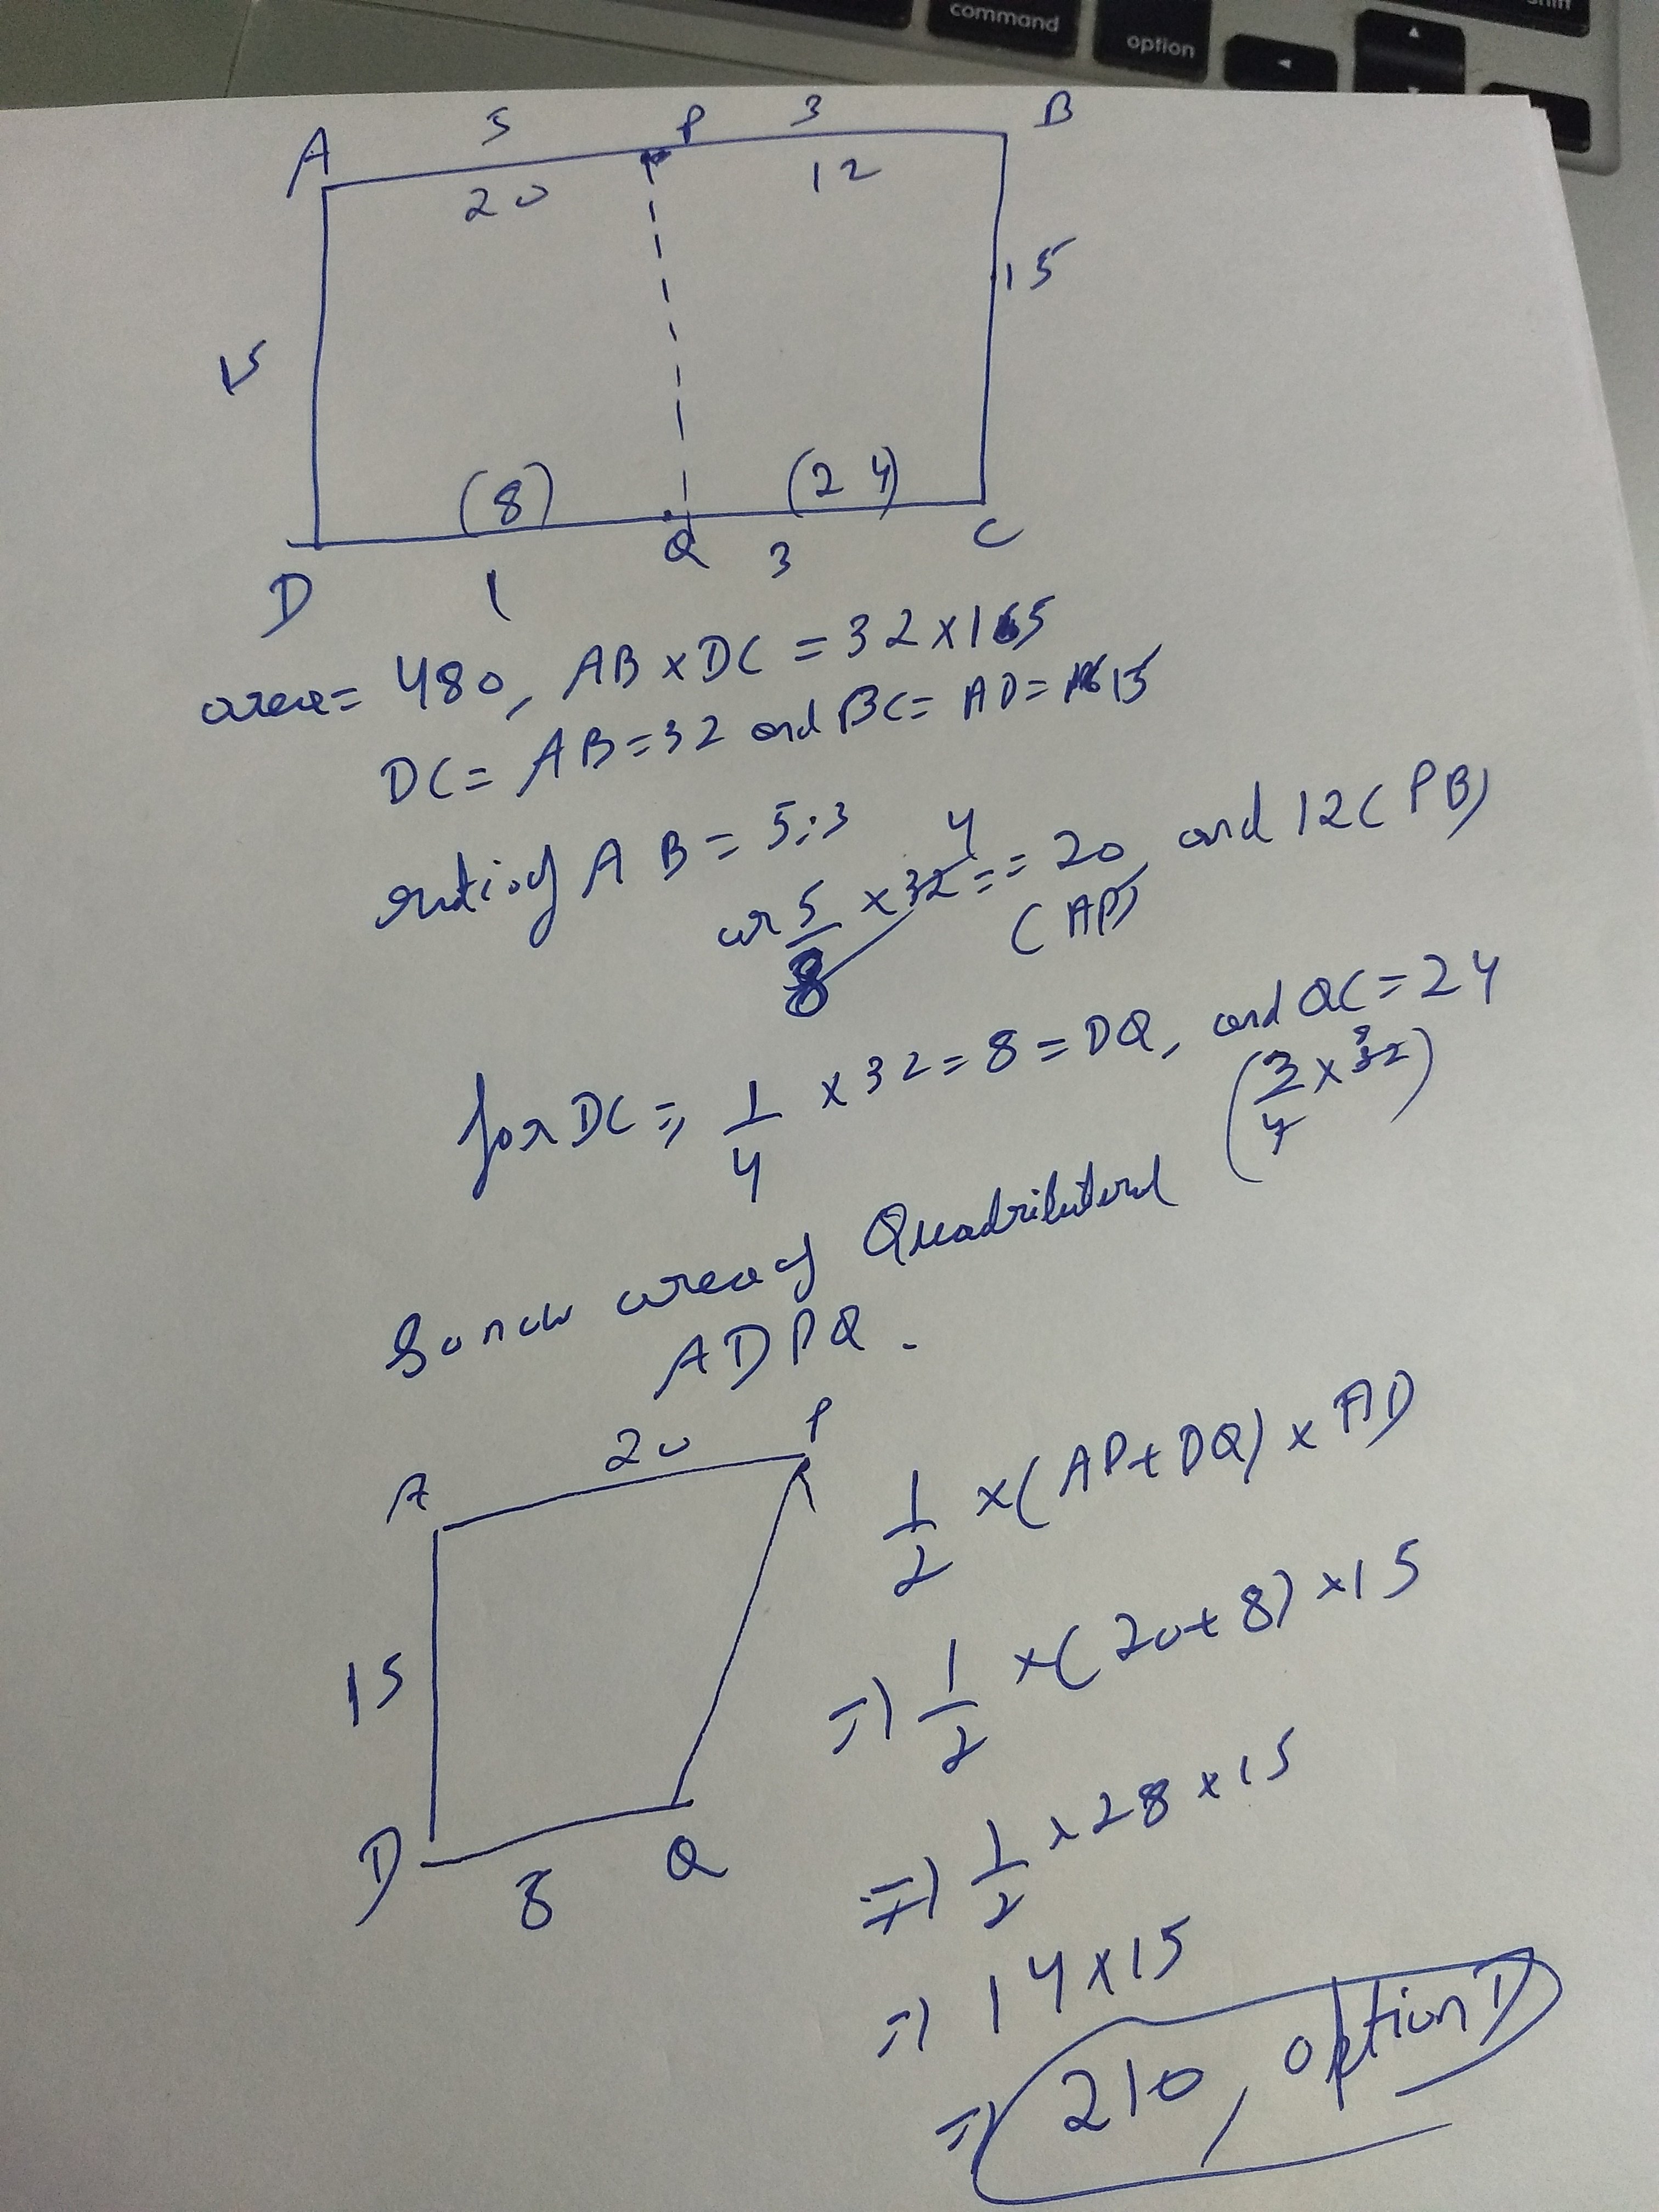 command
option
A 5 P 3 B
20 12
15
15
(8) (24)
D 1 Q 3 C
area = 480, AB x DC = 32 x 15
DC = AB = 32 and BC = AD = 15
ratio of AB = 5:3
or 5/8 x 32 4 == 20, and 12 (PB)
(AP)
for DC =, 1/4 x 32 = 8 = DQ, and QC = 24
(3/4 x 32 8)
So now area of Quadrilateral
ADPQ.
A 20 P
15
D 8 Q
1/2 x (AP + DQ) x AD
=) 1/2 x (20 + 8) x 15
=) 1/2 x 28 x 15
=) 14 x 15
=) 210, option D